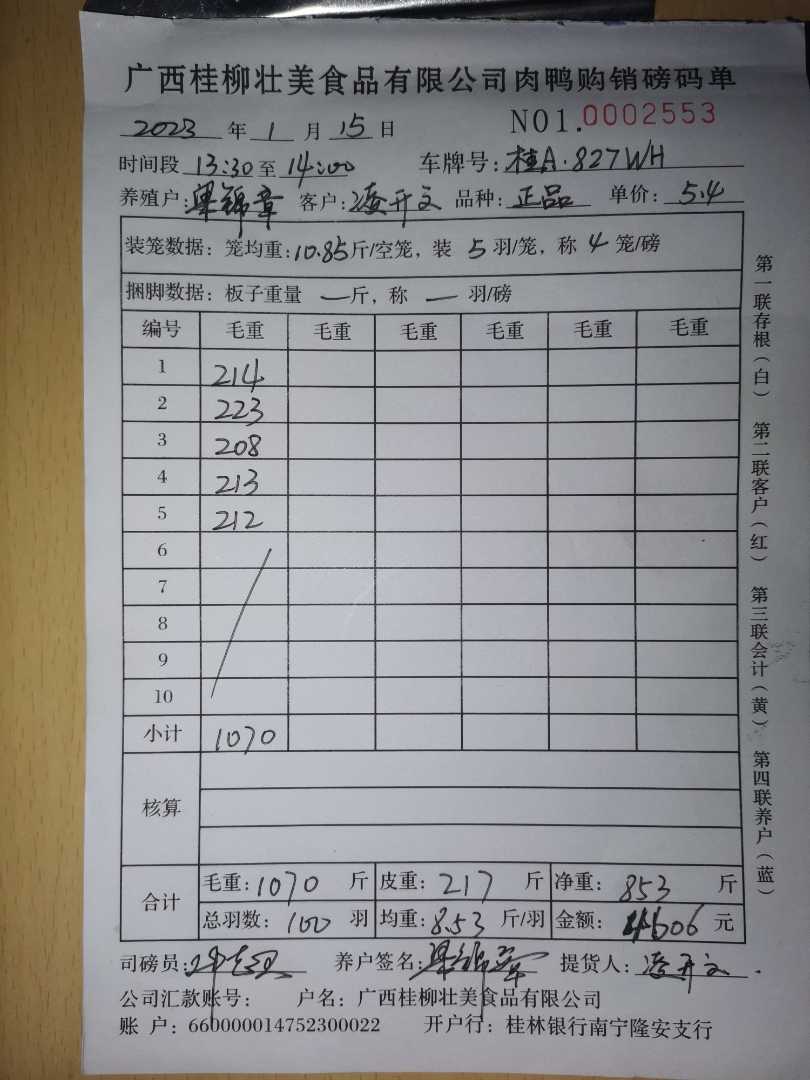 广西桂柳壮美食品有限公司肉鸭购销磅码单
2023 年 1 月 15 日 NO1.0002553
时间段 13:30 至 14:00 车牌号: 桂A·827WH
养殖户: 梁锦章 客户: 凌开文 品种: 正品 单价: 5.4
装笼数据: 笼均重: 10.85 斤/空笼, 装 5 羽/笼, 称 4 笼/磅
捆脚数据: 板子重量 — 斤, 称 — 羽/磅
编号 毛重 毛重 毛重 毛重 毛重 毛重
1 214
2 223
3 208
4 213
5 212
6
7
8
9
10
小计 1070
核算
合计 毛重: 1070 斤 皮重: 217 斤 净重: 853 斤
总羽数: 100 羽 均重: 8.53 斤/羽 金额: 4606 元
司磅员: 养户签名: 梁锦章 提货人: 凌开文.
公司汇款账号: 户名: 广西桂柳壮美食品有限公司
账 户: 660000014752300022 开户行: 桂林银行南宁隆安支行
第一联存根(白) 第二联客户(红) 第三联会计(黄) 第四联养户(蓝)